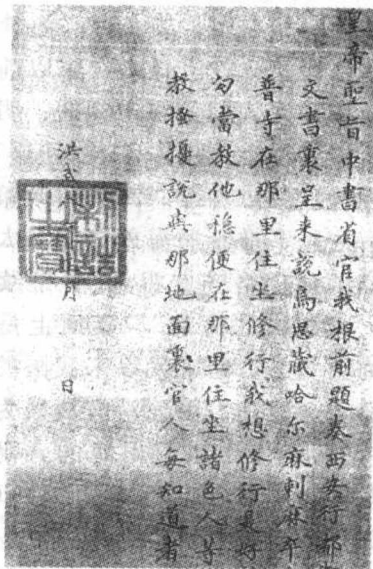 皇帝聖旨中書省官我根前題奏西安行都
文書裏呈来說烏思藏哈尔麻剌麻卒
普寺在那里住坐修行我想修行是好
勾當教他穩便在那里住坐諸色人等
教搔擾說與那地面裏官人每知道者
洪武 月 日
制誥之寶